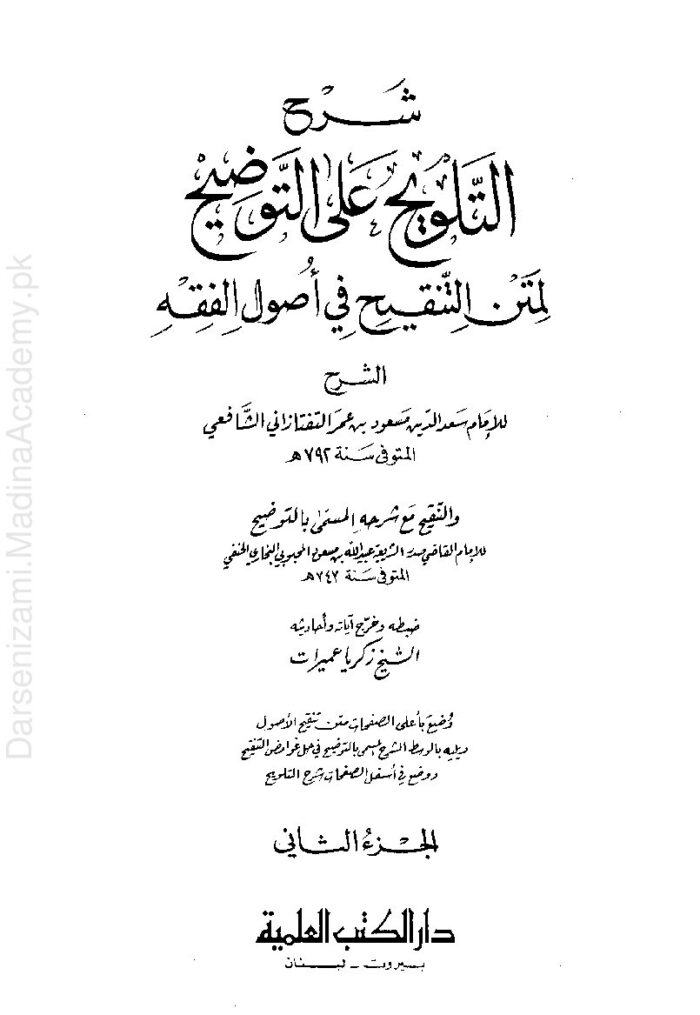 شرح
التلويح على التوضيح
لمتن التنقيح في أصول الفقه
الشرح
للإمام سعد الدين مسعود بن عمر التفتازاني الشافعي
المتوفى سنة ٧٩٢هـ
والتنقيح مع شرحه المسمى بالتوضيح
للإمام القاضي صدر الشريعة عبيد الله بن مسعود المحبوبي البخاري الحنفي
المتوفى سنة ٧٤٧هـ
ضبطه وخرّج آياته وأحاديثه
الشيخ زكريا عميرات
وُضِعَ بأعلى الصفحات متن تنقيح الأصول
ويليه بالوسط الشرح المسمى بالتوضيح في حل غوامض التنقيح
ووضع في أسفل الصفحات شرح التلويح
الجزء الثاني
دار الكتب العلمية
بيروت - لبنان
Darsenizami.MadinaAcademy.pk